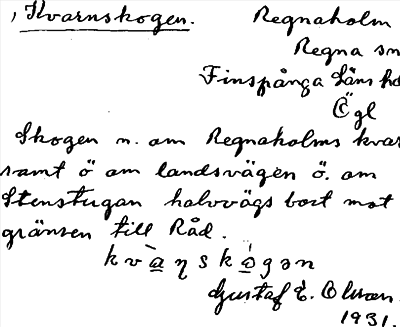 , Kvarnskogen. Regnaholm
Regna sn
Finspånga läns hd
Ögl
Skogen n. om Regnaholms kvar
samt ö om landsvägen ö. om
Stenstugan halvvägs bort mot
gränsen till Råd.
kvàŋskógən
Gustaf E. Olsson
1931.